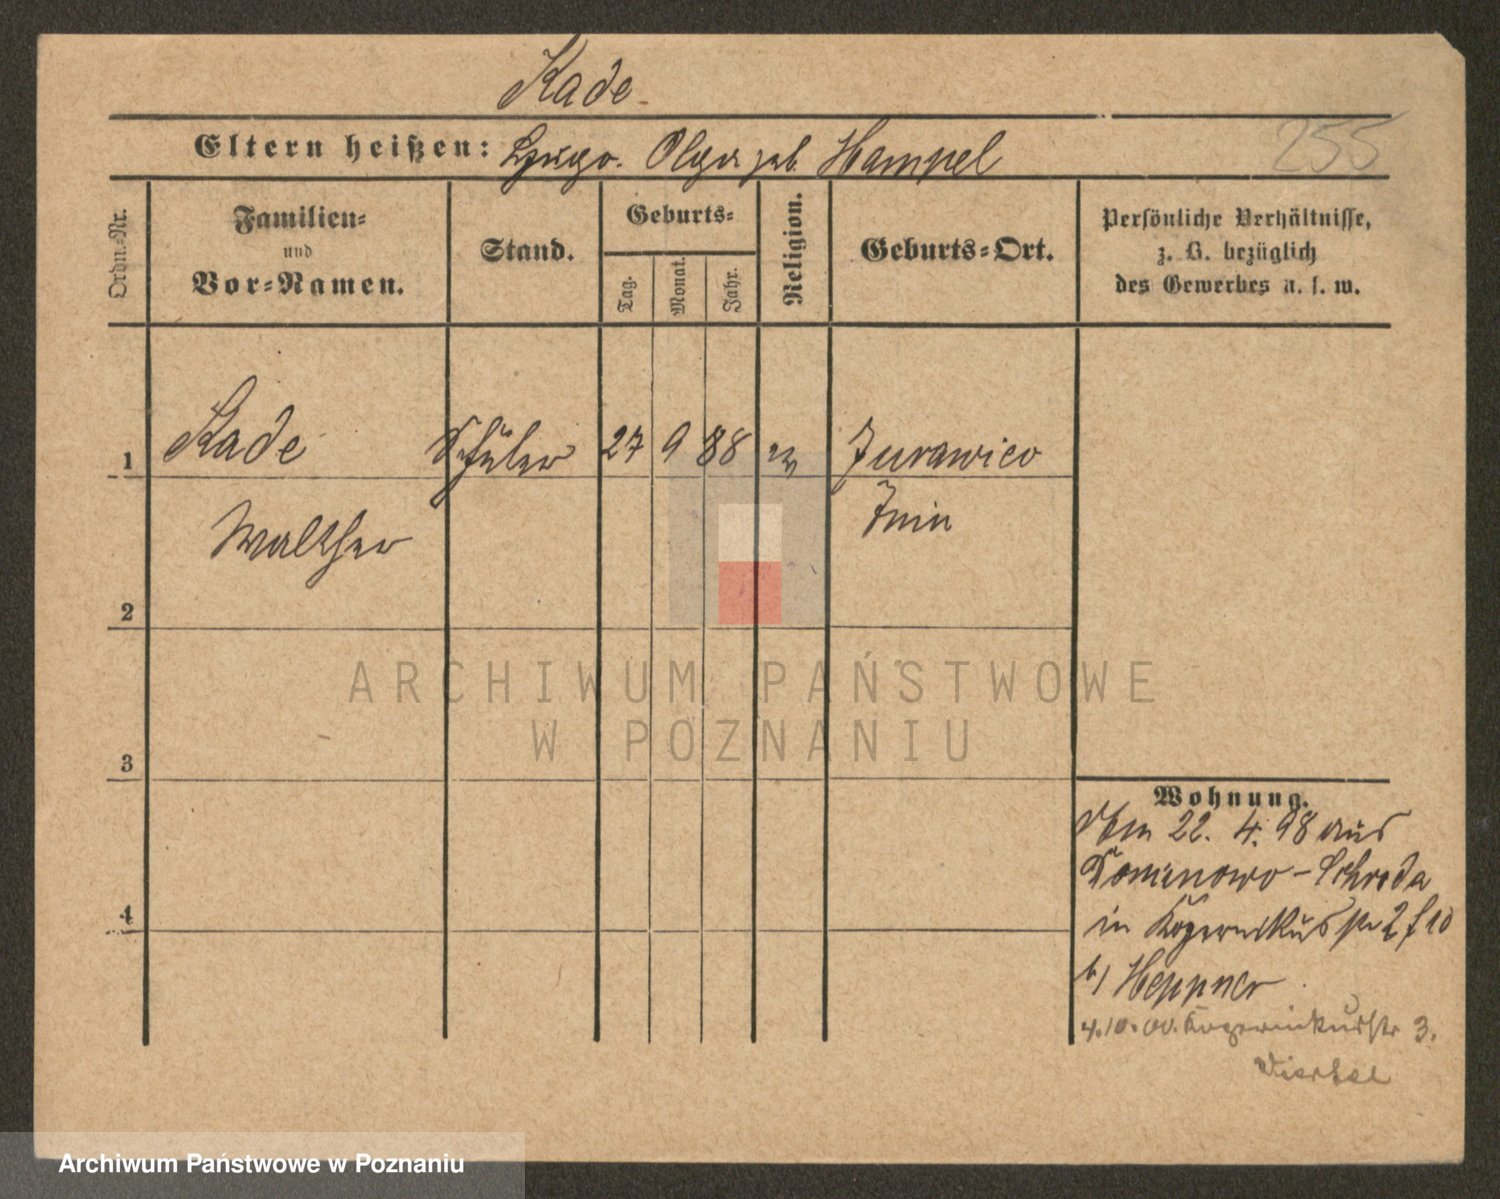 Kade
255
Eltern heißen: Hugo. Olga geb. Hampel
Ordn.-Nr.
Familien- und Vor-Namen.
Stand.
Geburts-
Tag.
Monat.
Jahr.
Religion.
Geburts-Ort.
Persönliche Verhältnisse,
z. B. bezüglich
des Gewerbes u. s. w.
1 Kade Schüler 27 9 88 ev Zurawice
Walther Znin
2
3
4
Wohnung.
22. 4. 98 aus
Dominowo - Schroda
in Kopernikusstr 2 f 10
b/ Heppner
4.10.00. Kopernikusstr 3.
Viertel
ARCHIWUM PAŃSTWOWE
W POZNANIU
Archiwum Państwowe w Poznaniu